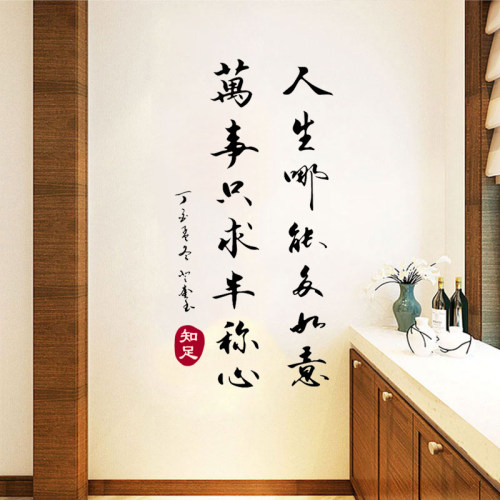 人生哪能多如意
萬事只求半称心
知足